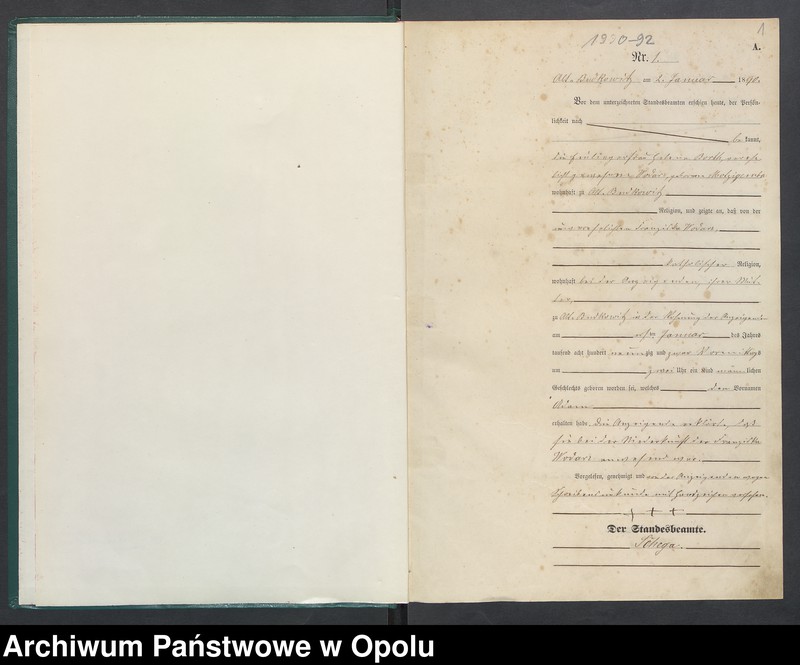 1
1890-92
A.
Nr. 1.
Alt-Budkowitz am 2. Januar 1890.
Vor dem unterzeichneten Standesbeamten erschien heute, der Persön-
lichkeit nach
be kannt,
die
geborene
wohnhaft zu Alt-Budkowitz
Religion, und zeigte an, daß von der
unverehelichten Franziska
katholischer Religion,
wohnhaft bei der Anzeigenden, ihrer Mut-
ter,
zu Alt-Budkowitz in der Wohnung der Anzeigenden
am ersten Januar des Jahres
tausend acht hundert neunzig und zwar Vormittags
um zwei Uhr ein Kind männlichen
Geschlechts geboren worden sei, welches den Vornamen
Adam
erhalten habe. Die Anzeigende erklärte, daß
sie bei der Niederkunft der Franziska
anwesend war.
Vorgelesen, genehmigt und von der Anzeigenden wegen
Schreibensunkunde mit Handzeichen versehen.
+ + +
Der Standesbeamte.
Archiwum Państwowe w Opolu